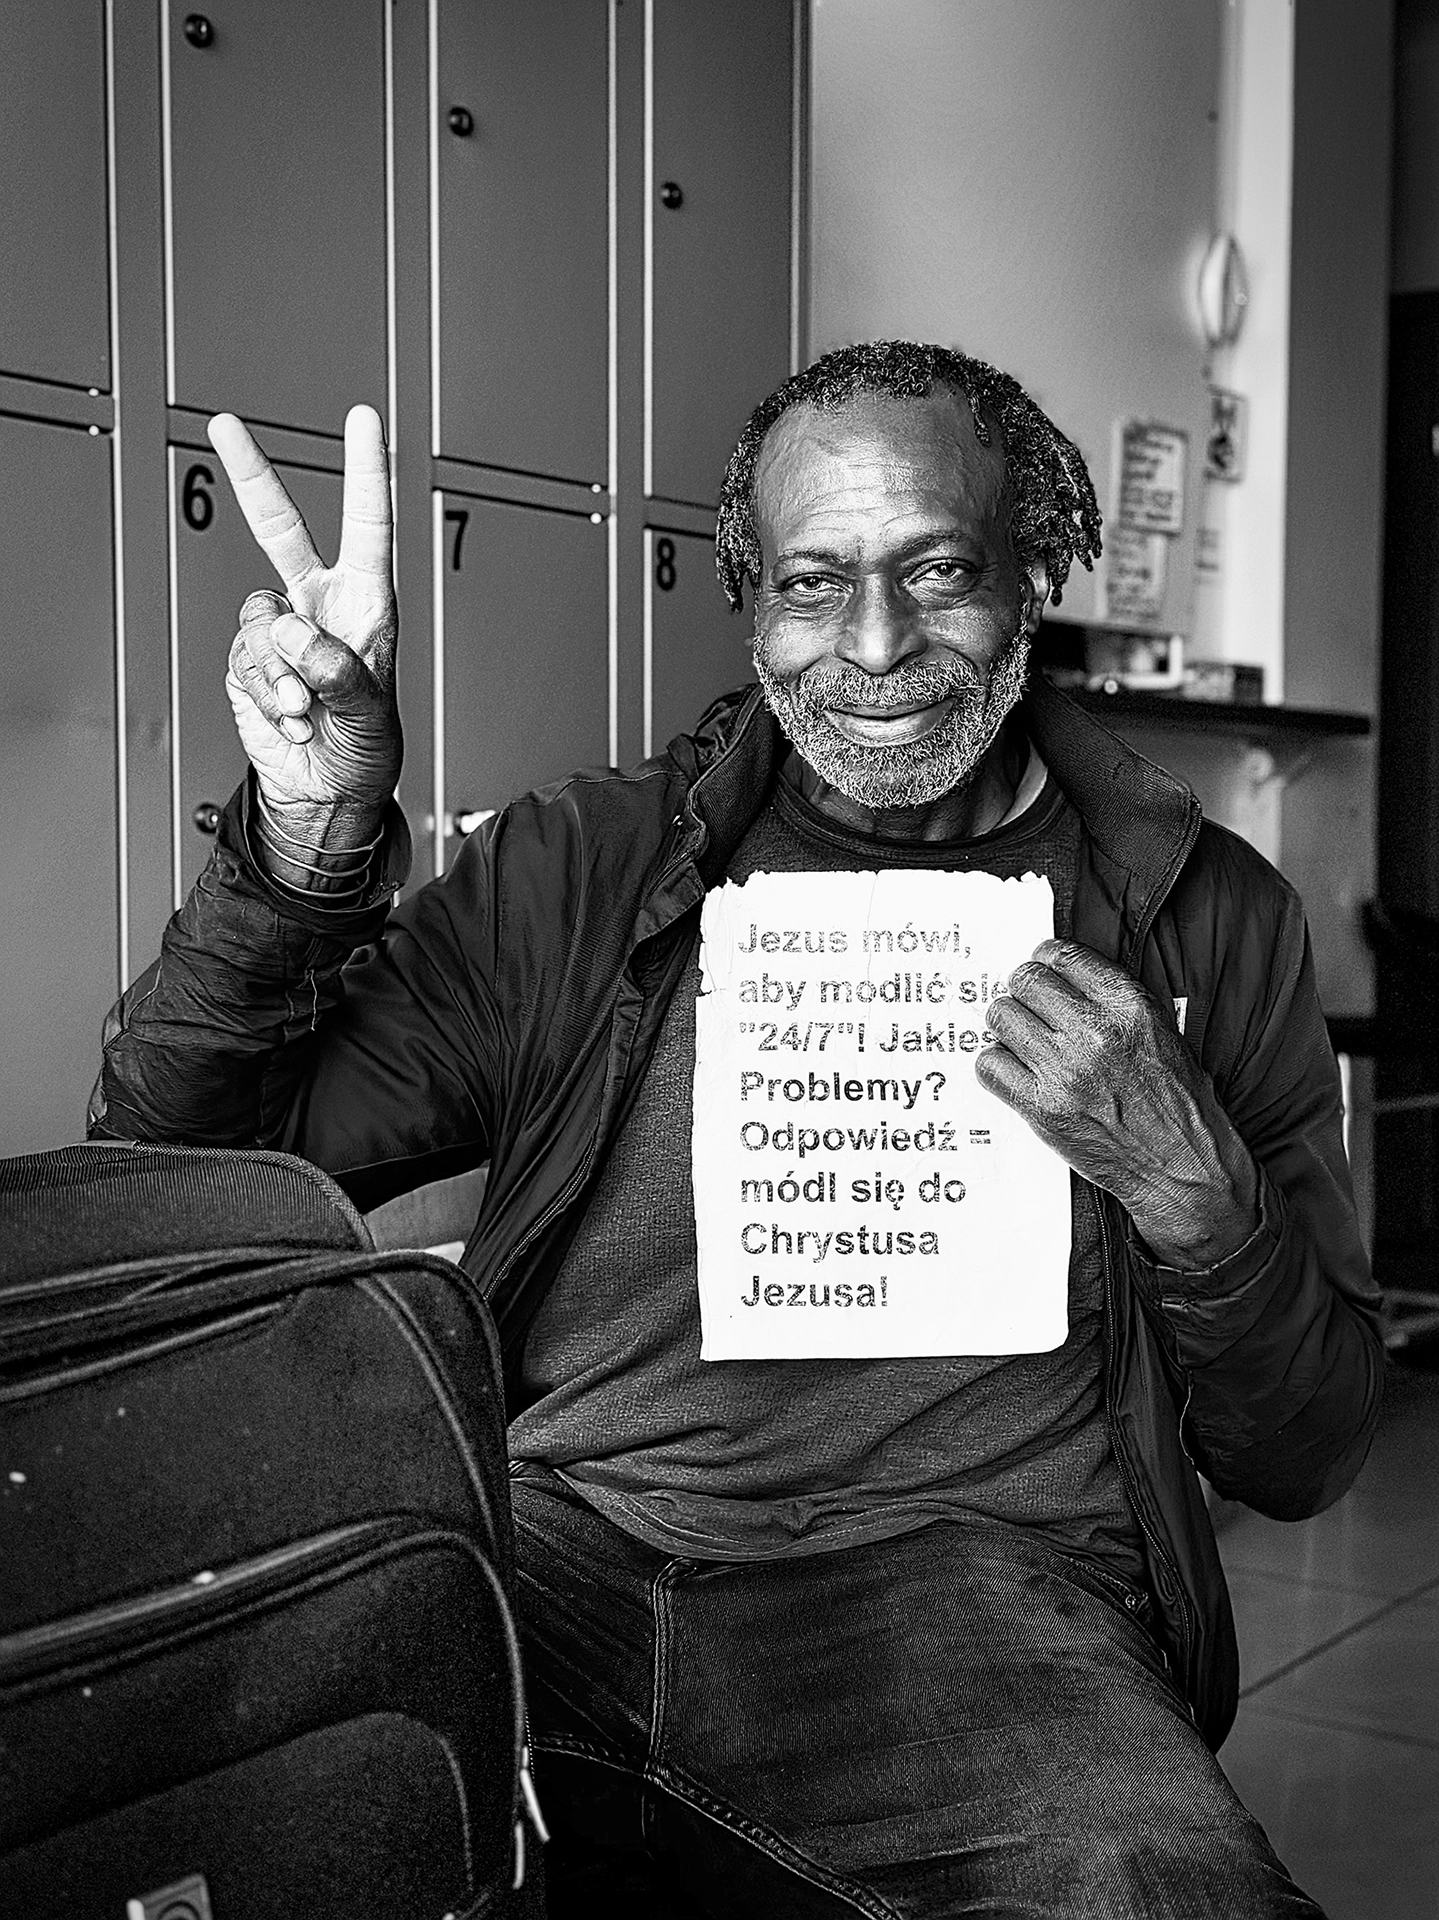 6
7
8
Jezus mówi,
aby modlić się
"24/7"! Jakies
Problemy?
Odpowiedź =
módl się do
Chrystusa
Jezusa!